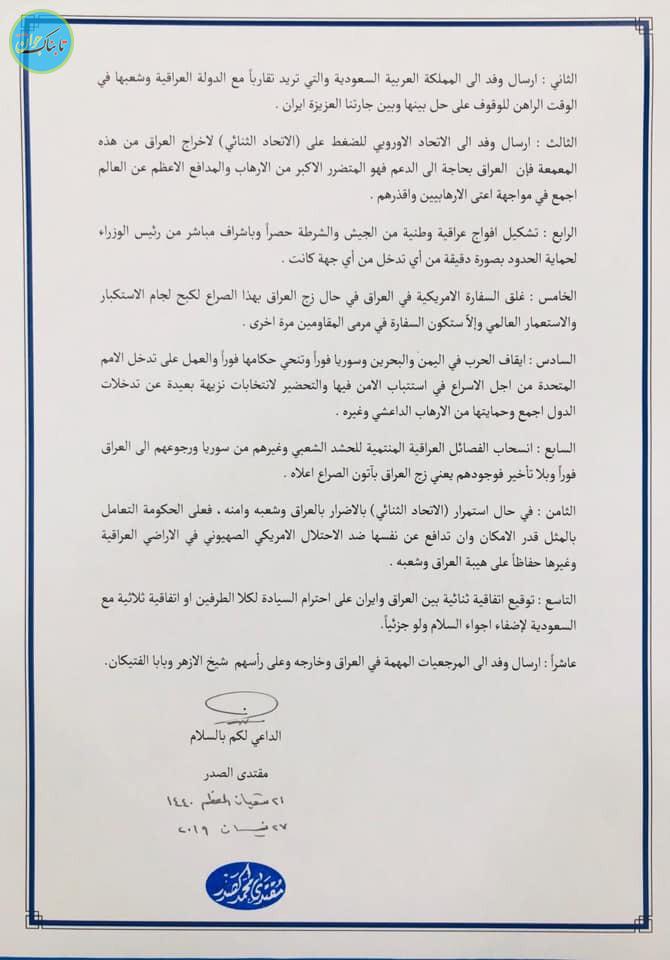 تابناک جوان
الثاني : ارسال وفد الى المملكة العربية السعودية والتي تريد تقارباً مع الدولة العراقية وشعبها في
الوقت الراهن للوقوف على حل بينها وبين جارتنا العزيزة ايران .
الثالث : ارسال وفد الى الاتحاد الاوروبي للضغط على (الاتحاد الثنائي) لاخراج العراق من هذه
المعمعة فإن العراق بحاجة الى الدعم فهو المتضرر الاكبر من الارهاب والمدافع الاعظم عن العالم
اجمع في مواجهة اعتى الارهابيين واقذرهم .
الرابع : تشكيل افواج عراقية وطنية من الجيش والشرطة حصراً وباشراف مباشر من رئيس الوزراء
لحماية الحدود بصورة دقيقة من أي تدخل من أي جهة كانت .
الخامس : غلق السفارة الامريكية في العراق في حال زج العراق بهذا الصراع لكبح لجام الاستكبار
والاستعمار العالمي وإلاّ ستكون السفارة في مرمى المقاومين مرة اخرى .
السادس : ايقاف الحرب في اليمن والبحرين وسوريا فوراً وتنحي حكامها فوراً والعمل على تدخل الامم
المتحدة من اجل الاسراع في استتباب الامن فيها والتحضير لانتخابات نزيهة بعيدة عن تدخلات
الدول اجمع وحمايتها من الارهاب الداعشي وغيره .
السابع : انسحاب الفصائل العراقية المنتمية للحشد الشعبي وغيرهم من سوريا ورجوعهم الى العراق
فوراً وبلا تأخير فوجودهم يعني زج العراق بآتون الصراع اعلاه .
الثامن : في حال استمرار (الاتحاد الثنائي) بالاضرار بالعراق وشعبه وامنه ، فعلى الحكومة التعامل
بالمثل قدر الامكان وان تدافع عن نفسها ضد الاحتلال الامريكي الصهيوني في الاراضي العراقية
وغيرها حفاظاً على هيبة العراق وشعبه .
التاسع : توقيع اتفاقية ثنائية بين العراق وايران على احترام السيادة لكلا الطرفين او اتفاقية ثلاثية مع
السعودية لإضفاء اجواء السلام ولو جزئياً.
عاشراً : ارسال وفد الى المرجعيات المهمة في العراق وخارجه وعلى رأسهم شيخ الازهر وبابا الفتيكان.
الداعي لكم بالسلام
مقتدى الصدر
٢١ شعبان المعظم ١٤٤٠
٢٧ نيسان ٢٠١٩